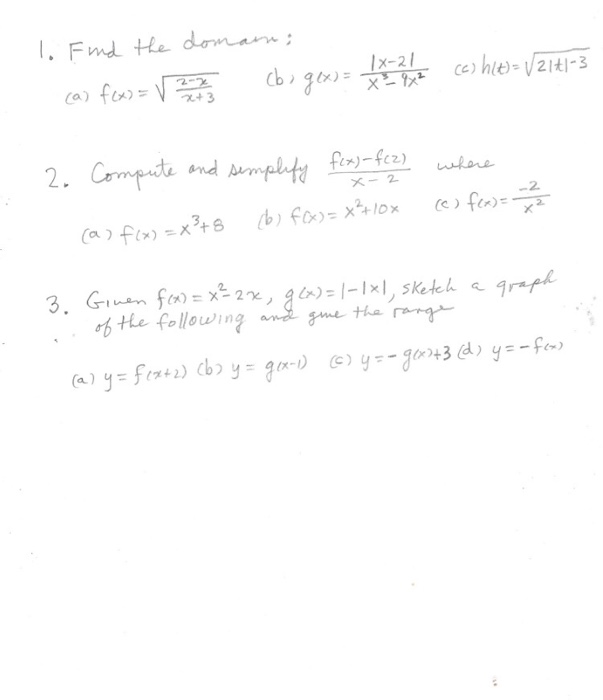 1. Find the domain:
(a) f(x) = √((2-x)/(x+3)) (b) g(x) = |x-2|/(x³-9x²) (c) h(t) = √(2|t|-3)
2. Compute and simplify (f(x)-f(2))/(x-2) where
(a) f(x) = x³+8 (b) f(x) = x²+10x (c) f(x) = -2/x²
3. Given f(x) = x²-2x, g(x) = 1-|x|, sketch a graph
of the following and give the range
(a) y = f(x+2) (b) y = g(x-1) (c) y = -g(x)+3 (d) y = -f(x)